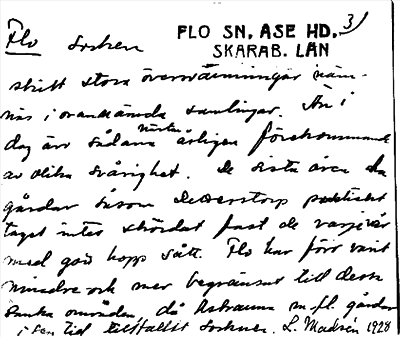 FLO SN, ÅSE HD. 3)
Flo socken SKARAB. LÄN
skift stora översvämningar näm-
nas i ovannämda samlingar. Än i
dag äro sådana nästan årligen förekommande
av olika svårighet. De sista åren ha
gårdar såsom Detterstorp praktiskt
taget intet skördat fast de varje vår
med gott hopp sått. Flo har förr varit
mindre och mer begränsat till dess
sanka områden, då Åsbrauna m. fl. gårdar
i sen tid tillfallit socknen. L. Maduin 1928